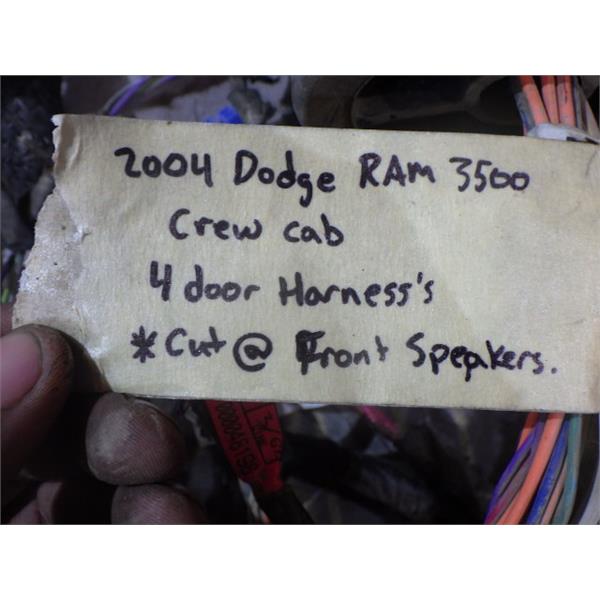 2004 Dodge RAM 3500
Crew cab
4 door Harness's
*Cut @ Front Speakers.